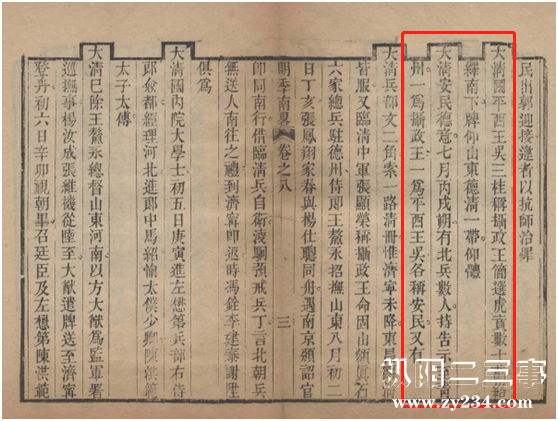 民出郭迎接違者以抗師治罪
大清國平西王吳三桂稱攝政王簡選虎賁數十
繹南下牌仰山東德清一帶仰體
大清安民德意七月丙戌朔有北兵數人持告示
州一爲攝政王一爲平西王吳各稱安民又有
大清兵部文二角索一路清冊惟濟寧未降東昌
皆服又臨清中軍張顯榮稱攝政王命固山額真石
六家總兵駐德州侍郎王鰲永招撫山東八月初二
日丁亥張鳳翔家眷與楊仕聰同舟遇南京頒詔官
明季南畧
卷之八
三
卽同南行借臨清兵自衛凌駉亦戒兵丁言北朝兵
無送人南往之禮到濟寧卽返時馮銓李建泰謝陞
俱爲
大清國內院大學士初五日庚寅進左懋第兵部右侍
郎僉都經理河北進郎中馬紹愉太僕少卿陳洪範
太子太傅
大清已除王鰲永總督山東河南以方大猷爲監軍署
巡撫事楊汝成張維機從陞至大猷遣牌送至濟寧
登舟初六日辛卯視朝畢召廷臣及左懋第陳洪範
枞阳二三事
www.zy234.com